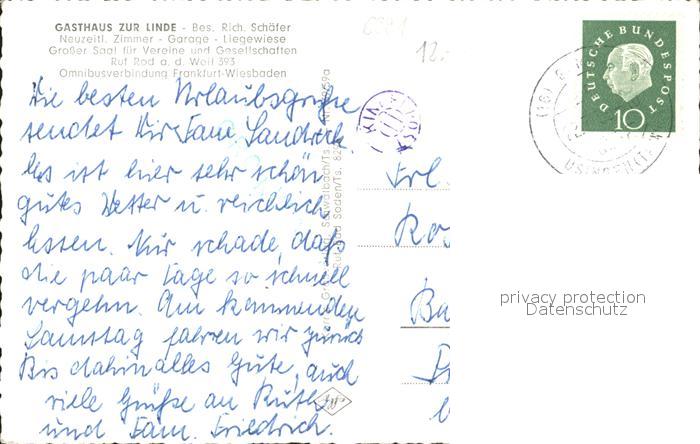 GASTHAUS ZUR LINDE - Bes. Rich. Schäfer
Neuzeitl. Zimmer - Garage - Liegewiese
Großer Saal für Vereine und Gesellschaften
Ruf Rod a. d. Weil 393
Omnibusverbindung Frankfurt-Wiesbaden
12.-
DEUTSCHE BUNDESPOST
10
Die besten Urlaubsgrüße
sendet Dir Fam.
Es ist hier sehr schön
gutes Wetter u. reichlich
Essen. Nur schade, daß
die paar Tage so schnell
vergehn. Am kommenden
Samstag fahren wir zurück
Bis dahin alles Gute, auch
viele Grüße an Ruth
und Fam. Friedrich.
Frl.
privacy protection
Datenschutz